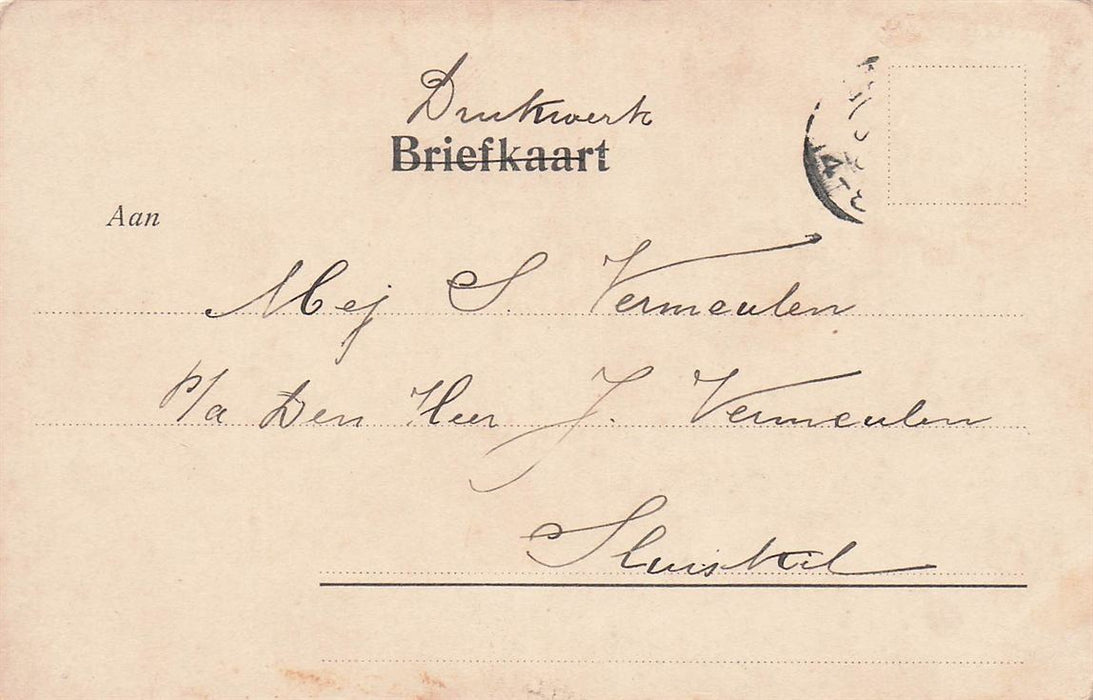 Drukwerk
Briefkaart
Aan
Mej S. Vermeulen
P/a Den Heer J. Vermeulen
Sluiskil